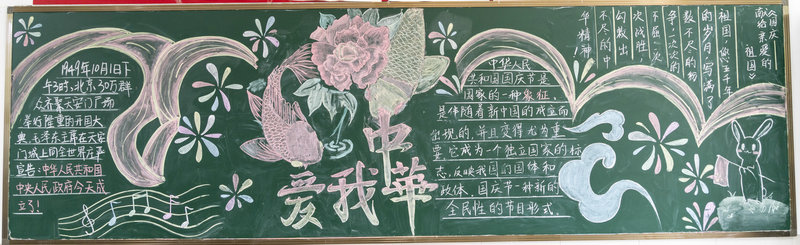 1949年10月1日下
午3时,北京30万群
众齐聚天安门广场
举行隆重的开国大
典,毛泽东主席在天安
门城上向全世界庄严
宣告:中华人民共和国
中央人民政府今天成
立了!
爱我中華
中华人民
共和国国庆节是
国家的一种象征,
是伴随着新中国的成立而
出现的,并且变得尤为重
要,它成为一个独立国家的标
志,反映我国的国体和
政体,国庆节一种新的
全民性的节目形式.
《国庆
献给亲爱的
祖国》
祖国,您五千年
的岁月,写满了
数不尽的
争,一次次的
不屈,一
次战胜,
勾勒出
不尽的中
华精神!